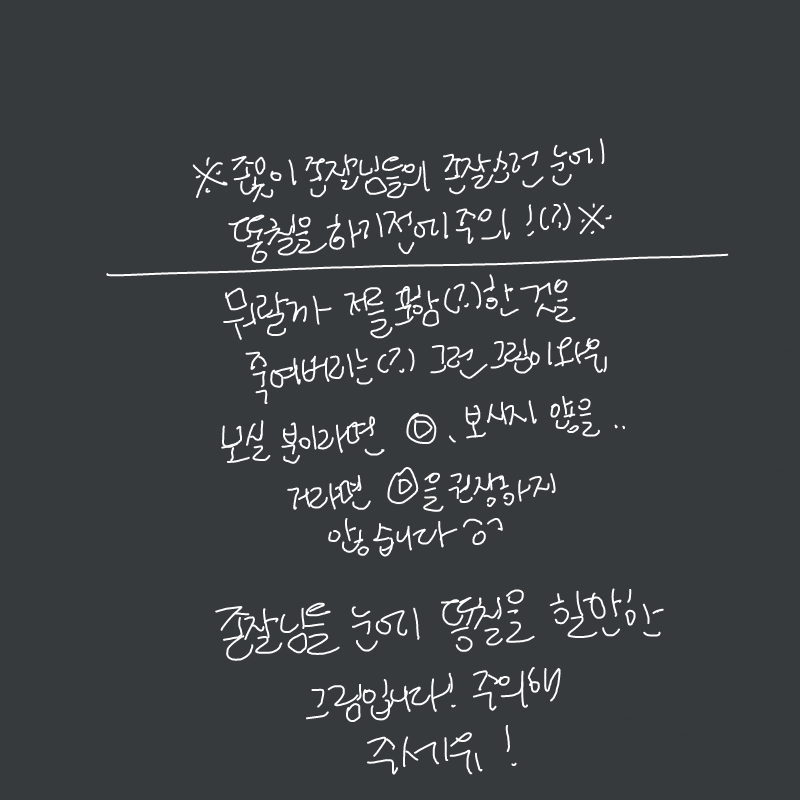 ※존못이 존잘님들의 존잘스런 눈에
똥칠을 하기전에 주의!(?)※
뭐랄까 저를 포함(?)한 것을
죽여버리는(?) 그런 그림이와요
보실 분이라면 ▷、보시지 않을..
거라면 ▷을 권장하지
않습니다ㅎㅎ
존잘님들 눈에 똥칠을 할만한
그림입니다! 주의해
주세요!